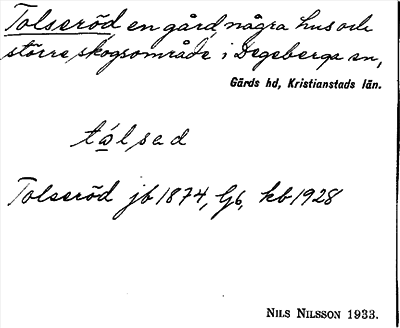 Tolseröd en gård, några hus och
större skogsområde i Degeberga sn,
Gärds hd, Kristianstads län.
tǻlsed
Tolseröd jb 1874, lj6, kb 1928
NILS NILSSON 1933.